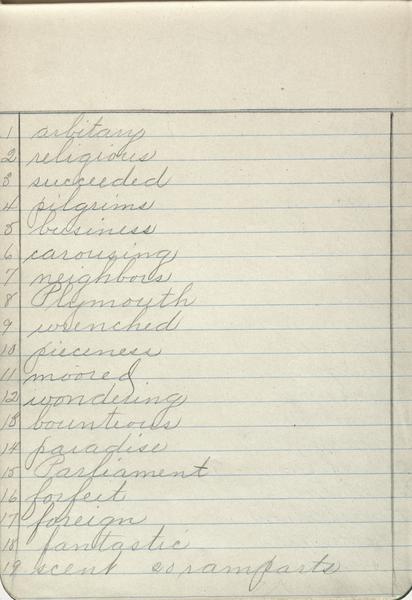 1 arbitary
2 religious
3 succeeded
4 pilgrims
5 business
6 carousing
7 neighbors
8 Plymouth
9 wrenched
10 pieceness
11 moored
12 wondering
13 bountious
14 paradise
15 Parliament
16 forfeit
17 foreign
18 fantastic
19 scent 20 ramparts